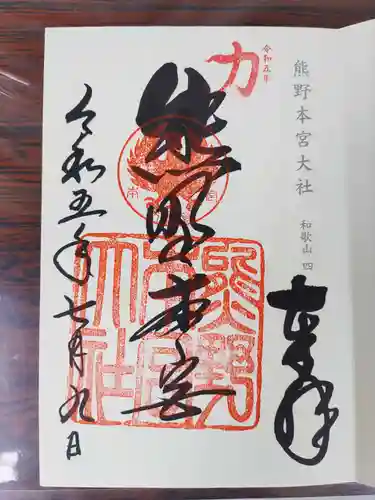 熊野本宮大社
和歌山 四
奉拝
力
令和五年
熊野本宮
本
宮
熊野
本宮
大社
令和五年七月九日